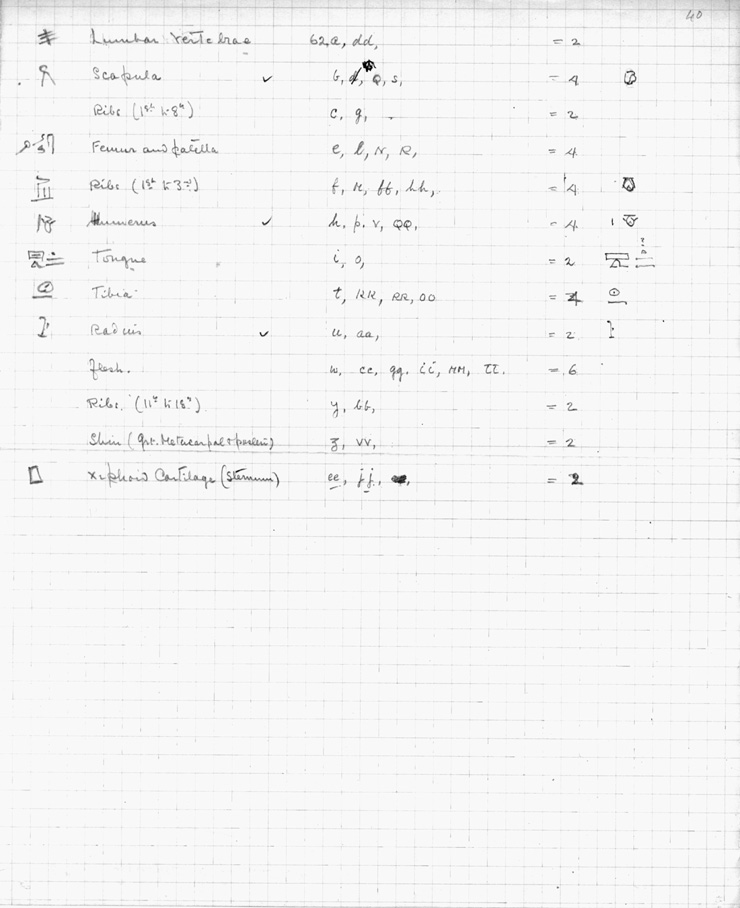 40
Lumbar Vertebrae 62,a, dd, = 2
Scapula ✓ b, d, Q, s, = 4
Ribs (1st to 8th) c, g, = 2
Femur and patella e, l, N, R, = 4
Ribs (1st to 3rd) f, M, ff, hh, = 4
Humerus ✓ h. p. v, QQ, = 4
Tongue i, o, = 2
Tibia t, KK, RR, OO = 4
Radius ✓ u, aa, = 2
Flesh. w, cc, gg, ii, MM, TT. = 6
Ribs. (11th to 18th) y, bb, = 2
Shin (Grt. Metacarpal & pastern) z, VV, = 2
Xiphoid Cartilage (Sternum) ee, jj, = 2